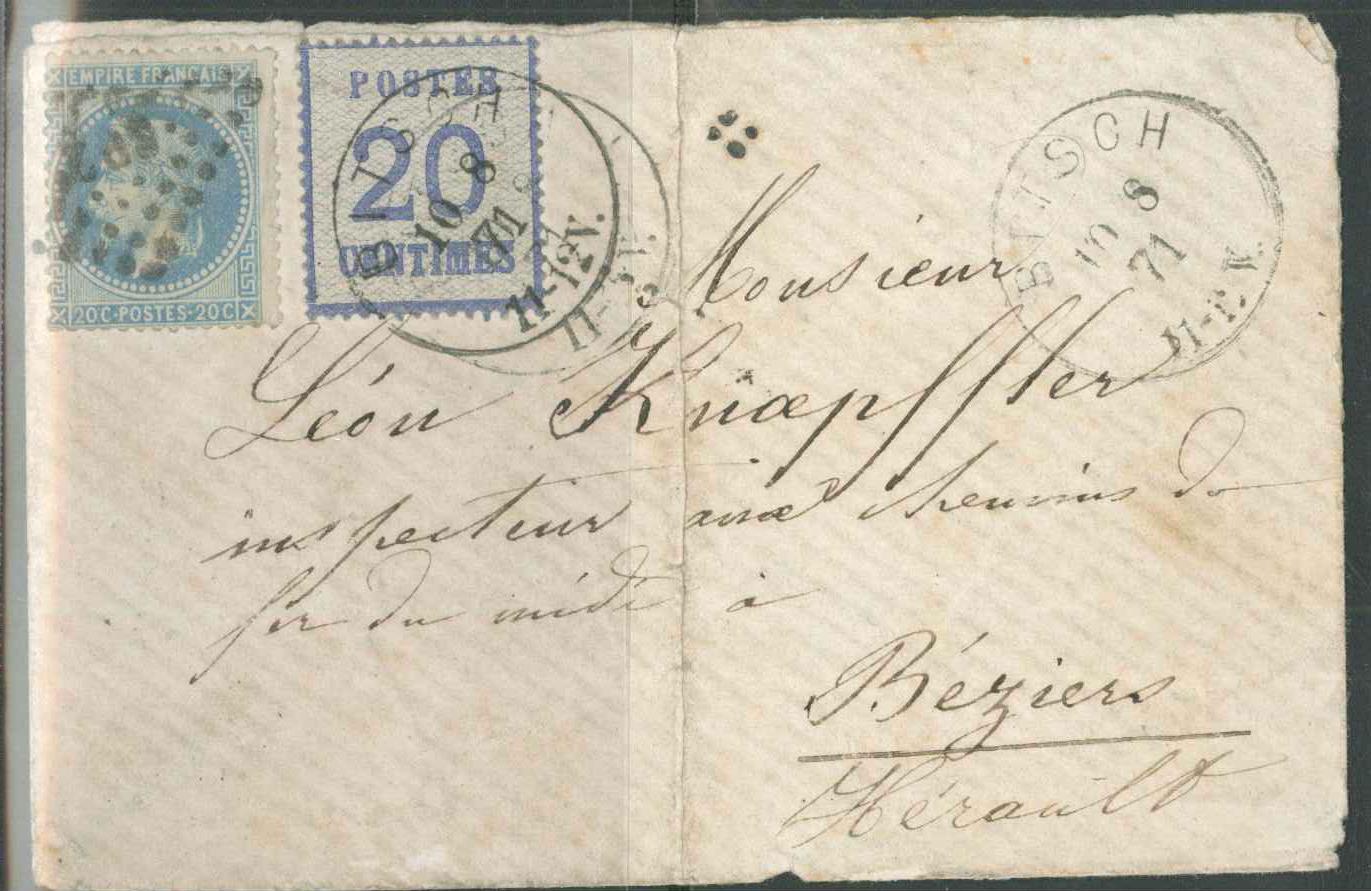 EMPIRE FRANÇAIS
20C·POSTES·20C
POSTES
20
CENTIMES
BITSCH
10 8
71
11-12V.
BITSCH
10 8
71
11-12V.
Monsieur
Léon Knœpffler
inspecteur aux chemins de
fer du midi à
Béziers
Hérault